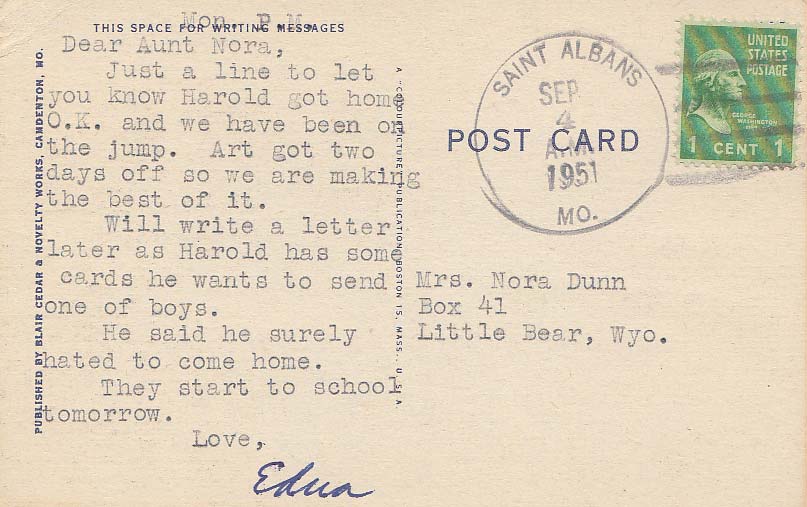 Mon. P.M.
THIS SPACE FOR WRITING MESSAGES
Dear Aunt Nora,
Just a line to let
you know Harold got home
O.K. and we have been on
the jump. Art got two
days off so we are making
the best of it.
Will write a letter
later as Harold has some
cards he wants to send
one of boys.
He said he surely
hated to come home.
They start to school
tomorrow.
Love,
Edna
PUBLISHED BY BLAIR CEDAR & NOVELTY WORKS, CAMDENTON, MO.
A "COLOURPICTURE" PUBLICATION, BOSTON 15, MASS., U.S.A.
POST CARD
SAINT ALBANS
SEP
4
A.M.
1951
MO.
UNITED
STATES
POSTAGE
GEORGE
WASHINGTON
1 CENT 1
Mrs. Nora Dunn
Box 41
Little Bear, Wyo.